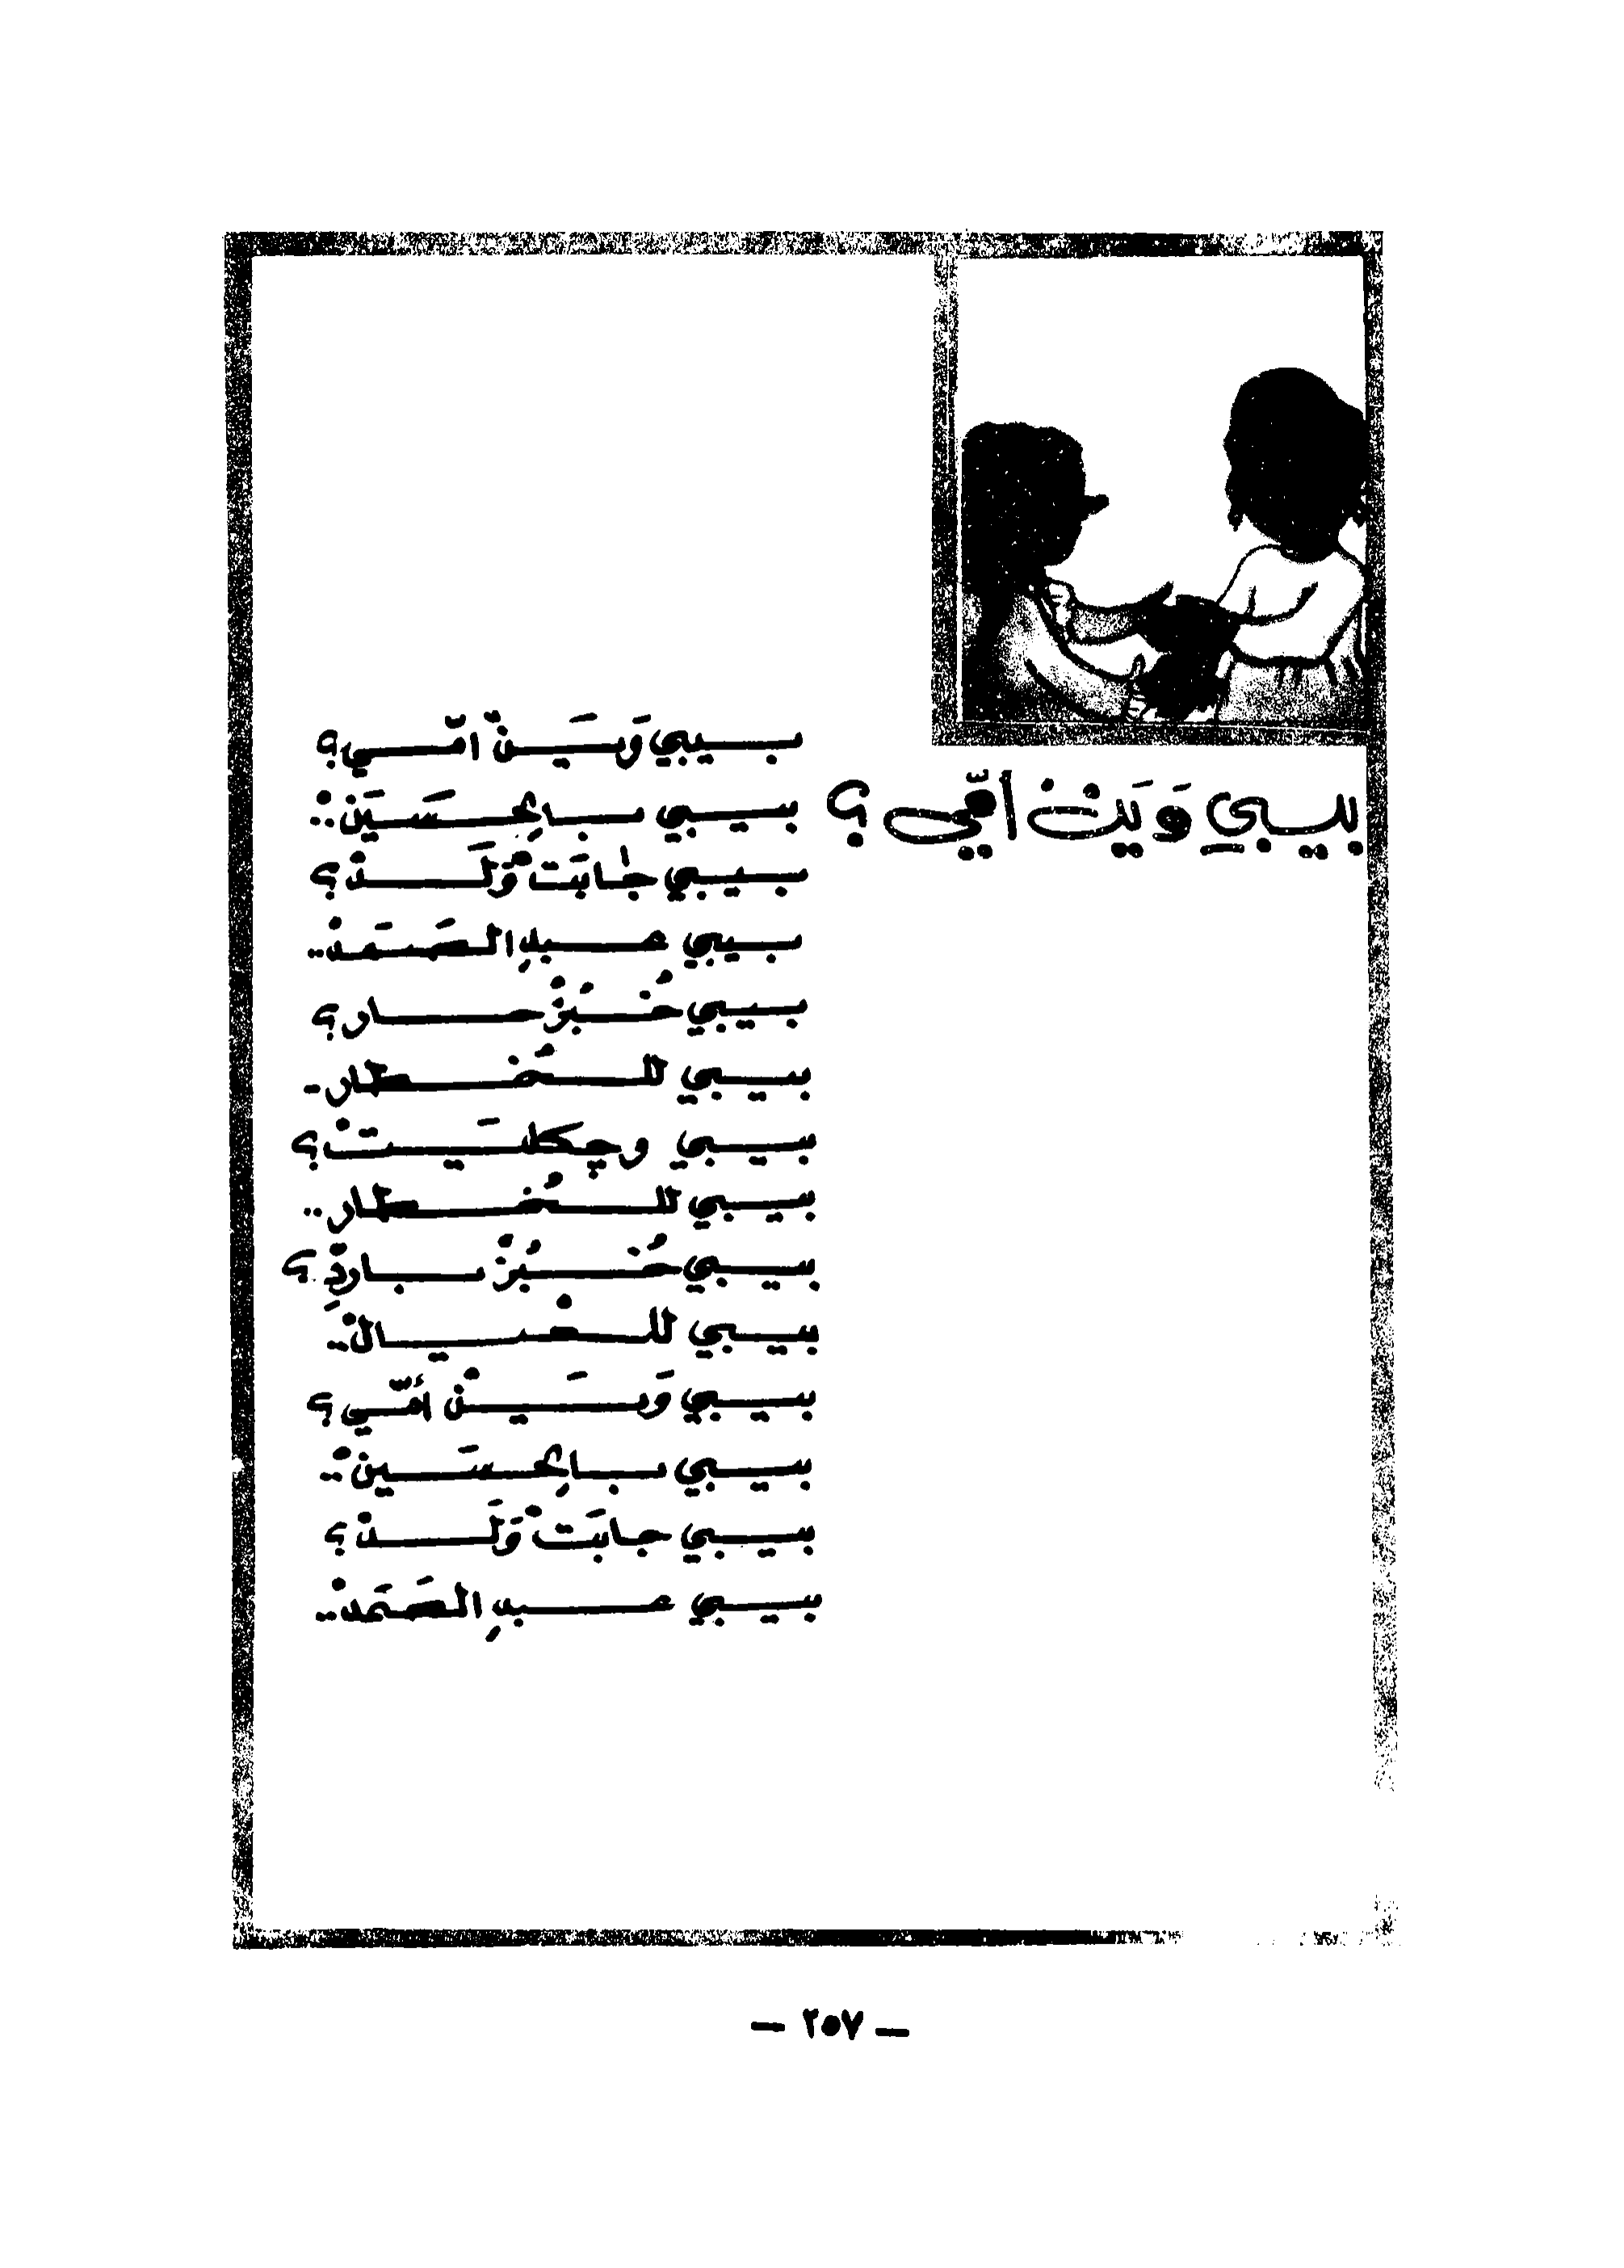 بيبي وَيَنْ أمّي ؟
بيبي وَيَنْ امّي؟
بيبي بالِحسَيَن..
بيبي جابَتْ وَلَدْ؟
بيبي عبدِ الصَمَدْ..
بيبي خُبُزْ حار؟
بيبي للخُطار..
بيبي وچكليَتْ؟
بيبي للخُطار..
بيبي خُبُزْ باردِ؟
بيبي للخْيَالْ..
بيبي وَيَنْ أمّي؟
بيبي بالِحسَين..
بيبي جابَتْ وَلَدْ؟
بيبي عبدِ الصَمَدْ..
— ٢٥٧ —